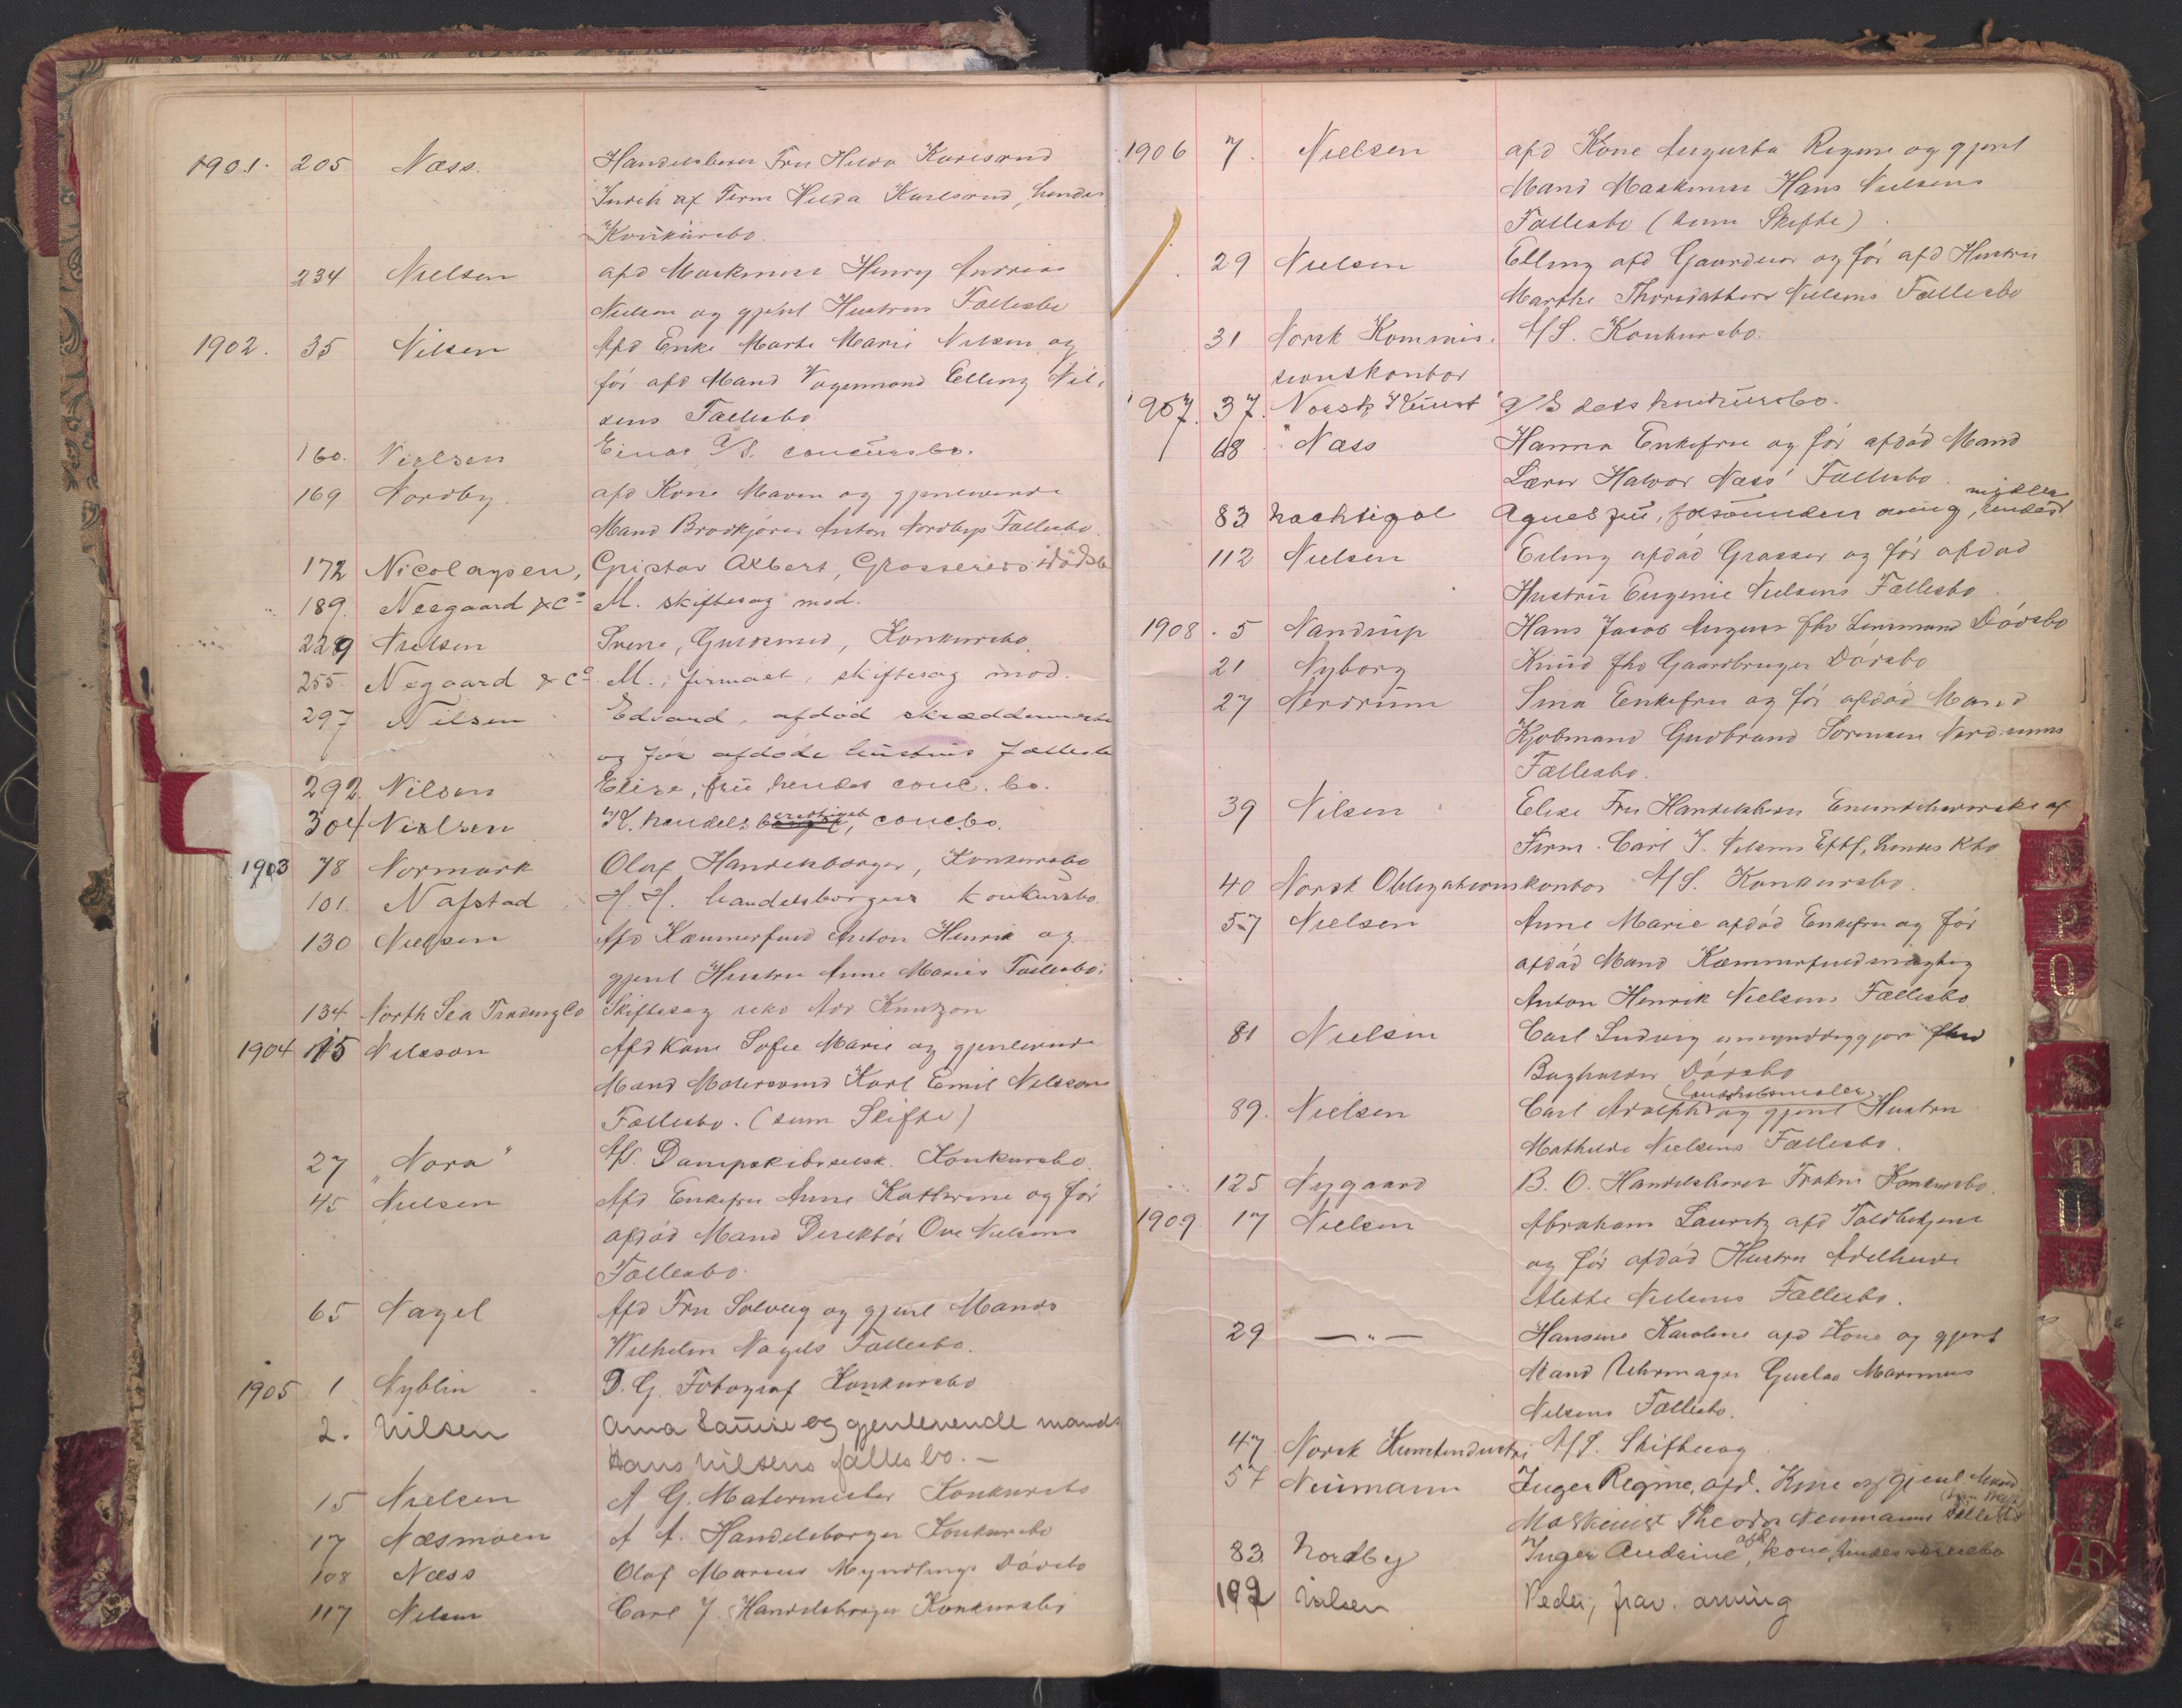 1901. 205 Næss. Handelsberett. Fru Hilda Karlsrud
Indeh af Firm Hilda Karlsrud, hendes
Konkursbo.
234 Nielsen afd Maskinist Henry Andreas
Nielsen og gjenl Hustrus Fællesbo
1902. 35 Nilsen Afd Enke Marte Marie Nilsen og
før afd Mand Vognmand Elling Nil-
sens Fællesbo
160. Nielsen Einar A/S. concursbo.
169 Nordby. afd Kone Maren og gjenlevende
Mand Brødkjører Anton Nordbys Fællesbo
172 Nicolaysen, Gustav Albert, Grosserers dödsbo
189. Neegaard & Co M. skiftesag mod.
229 Nielsen Svend, Guldsmed, Konkursbo.
255. Negaard & Co. M., firmaet, skiftesag mod.
297 Nilsen Edvard, afdöd skræddermester
og før afdöde hustrus fællesbo
292 Nilsen Elise, fru hendes conc. bo.
304 Nielsen K. handelsberettiget, concbo.
1903 78 Normark Olaf Handelsborger, Konkursbo
101. Nafstad H. H. handelsborgers konkursbo.
130 Nielsen Afd Kæmnerfuld Anton Henrik og
gjenl Hustru Anne Maries Fællesbo.
134 North Sea Trading Co Skiftesag Adv Knutzon
1904 15 Nilsson Afd Kone Sofie Marie og gjenlevende
Mand Malersvend Karl Emil Nilssons
Fællesbo. (sum Skifte)
27 "Nora" A/S. Dampskibsselsk. Konkursbo.
45 Nielsen Afd Enkefru Anne Kathrine og før
afdød Mand Direktør Ove Nielsens
Fællesbo.
65 Nagel Afd Fru Solveig og gjenl Mands
Wilhelm Nagels Fællesbo.
1905 1 Nyblin D. G. Fotograf Konkursbo
2. Nilsen Anna Lauise og gjenlevende mands
Hans Nilsens fællesbo. —
15 Nielsen A G. Malermester Konkursbo
17 Næsmoen A A. Handelsborger Konkursbo
108 Næss Olaf Marius Myndlings Dødsbo
117 Nilsen Carl J. Handelsborger Konkursbo
1906 7. Nielsen afd Kone Augusta Regine og gjenl
Mand Maskinist Hans Nielsens
Fællesbo (sum Skifte).
29 Nielsen Elling afd Gaardeier og før afd Hustru
Marthe Thorsdatters Nielsens Fællesbo
31 Norsk Kommis- A/S. Konkursbo.
sionskontor
1907. 37. Norsk Kunst A/S dets konkursbo.
68 Næss Hanna Enkefru og før afdød Mand
Lærer Halvor Næss' Fællesbo.
83 Nachtigal Agnes fru, forsvunden arving, hendes midler
112 Nielsen Erling afdød Grosser og før afdød
Hustru Eugenie Nielsens Fællesbo
1908. 5 Nandrup Hans Jacob August fhv Lensmand Dødsbo
21 Nyborg Knud fhv Gaardbruger Dødsbo
27 Nerdrum Sina Enkefru og før afdød Mand
Kjøbmand Gudbrand Sørensen Nerdrums
Fællesbo.
39 Nilsen Elise Fru Handelsberett Eneindehaverske af
Firm. Carl J. Nilsens Eftf, hendes Kbo
40 Norsk Obligationskontor A/S. Konkursbo.
57 Nielsen Anne Marie afdød Enkefru og før
afdød Mand Kæmnerfuldmægtig
Anton Henrik Nielsens Fællesbo
81 Nielsen Carl Ludvig umyndiggjort fhv
Bogholder Dødsbo
89. Nielsen Carl Adolph landskabsmaler og gjenl Hustru
Mathilde Nielsens Fællesbo.
125 Nygaard B. O. Handelsborer Konkursbo.
1909. 17 Nielsen Abraham Lauritz afd Toldbetjent
og før afdød Hustru Adelheide
Alette Nielsens Fællesbo.
29 — " — Hansine Karoline afd Kone og gjenl
Mand Uhrmager Gustav Marinius
Nielsens Fællesbo.
47 Norsk Kunstindustri A/S. Skiftesag
57 Neumann Inger Regine, afd. Kone og gjenl Mand
Maskinist Theodor Neumanns Fællesbo
83 Nordby Inger Andrine, afd. kone, hendes særebo
192 Nilsen Peder, frav. arving
N
O
P
Q
S
T
U
Z
Æ